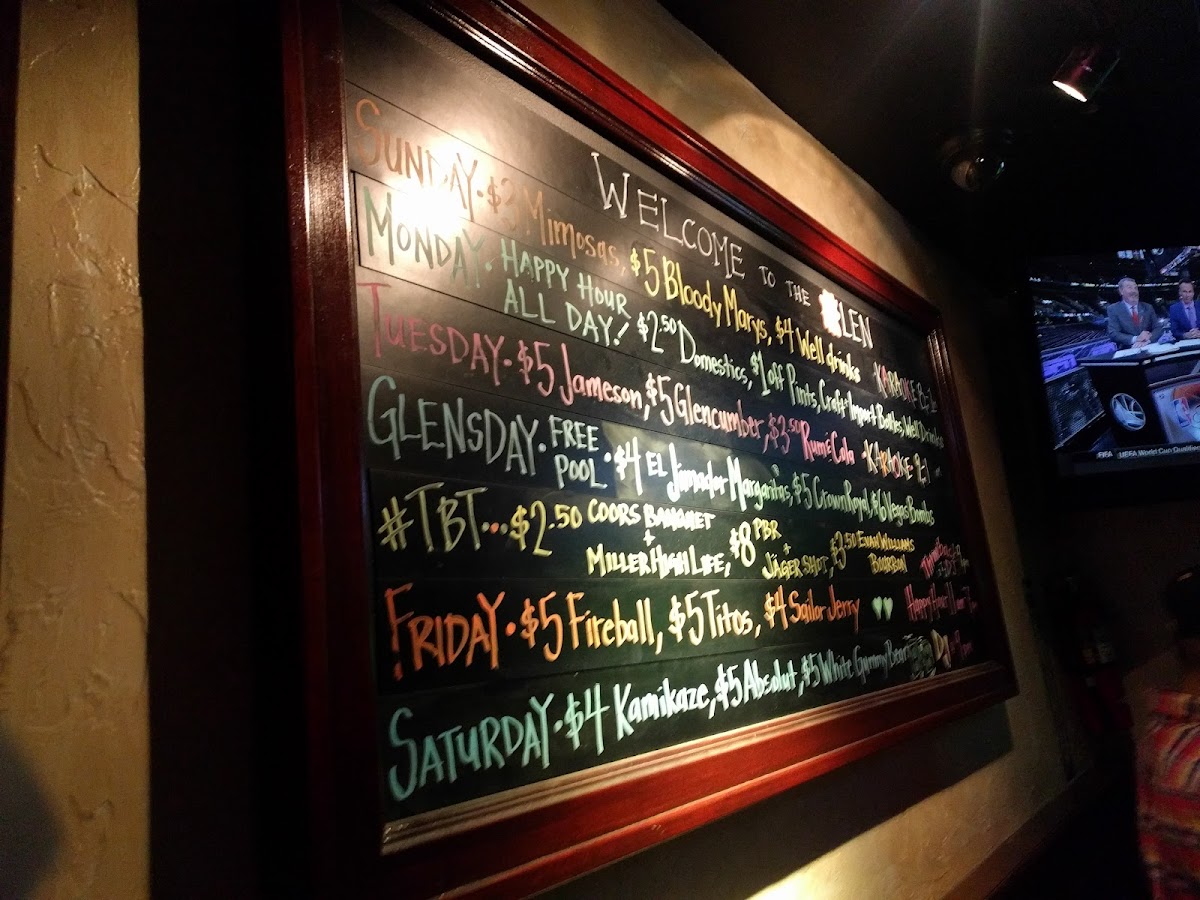 WELCOME TO THE GLEN
SUNDAY • $3 Mimosas, $5 Bloody Marys, $4 Well drinks KARAOKE
MONDAY • HAPPY HOUR ALL DAY! $2.50 Domestics, $1 off Pints, Craft + Import Bottles, Well Drinks
TUESDAY • $5 Jameson, $5 Glencumber, $3.50 Rum & Cola • KARAOKE
GLENSDAY • FREE POOL • $4 EL Jimador Margaritas, $5 Crown Royal, $6 Vegas Bombs
#TBT... $2.50 COORS BANQUET + MILLER HIGH LIFE, $8 PBR + JÄGER SHOT, $3.50 EVAN WILLIAMS BOURBON
FRIDAY • $5 Fireball, $5 Titos, $4 Sailor Jerry Happy Hour
SATURDAY • $4 Kamikaze, $5 Absolut, $5 White Gummy Bear
FIFA UEFA World Cup Qualifiers